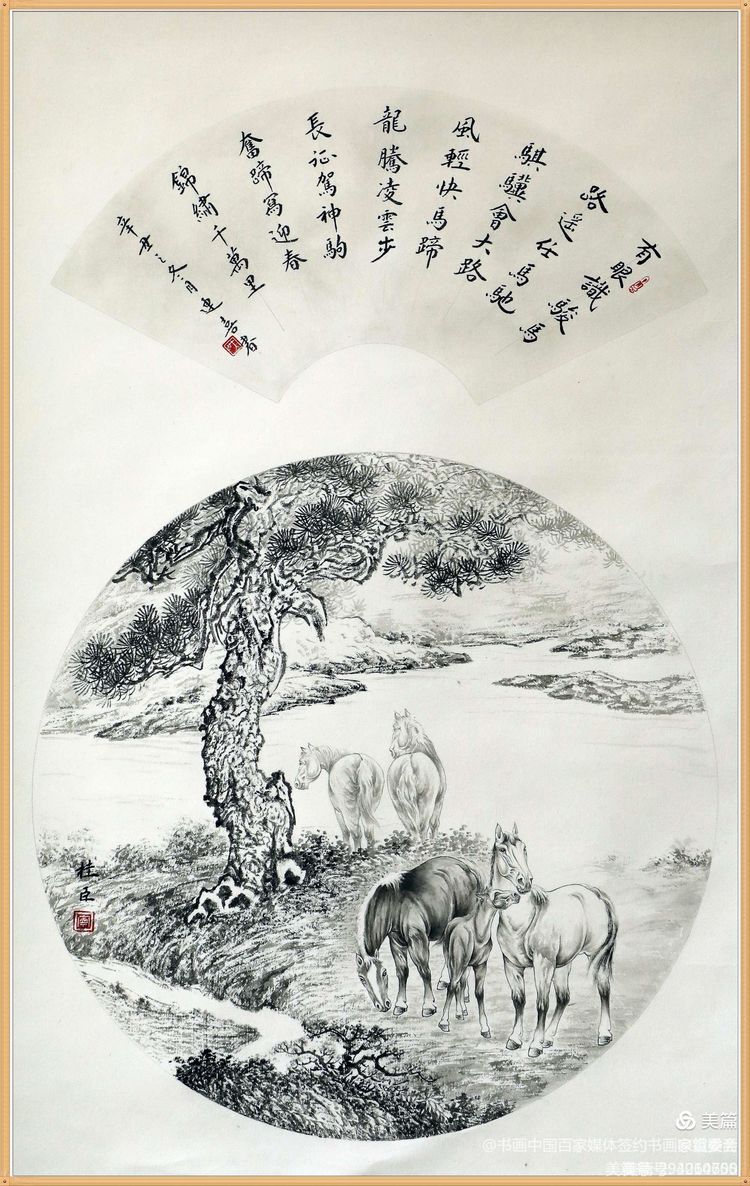 有眼識駿馬
路遥任馬馳
騏驥會大路
風輕快馬蹄
龍騰凌雲步
長征駕神駒
奮蹄寫迎春
錦繡千萬里
辛丑之冬月建喜書
桂臣
美篇
@书画中国百家媒体签约书画家组委会